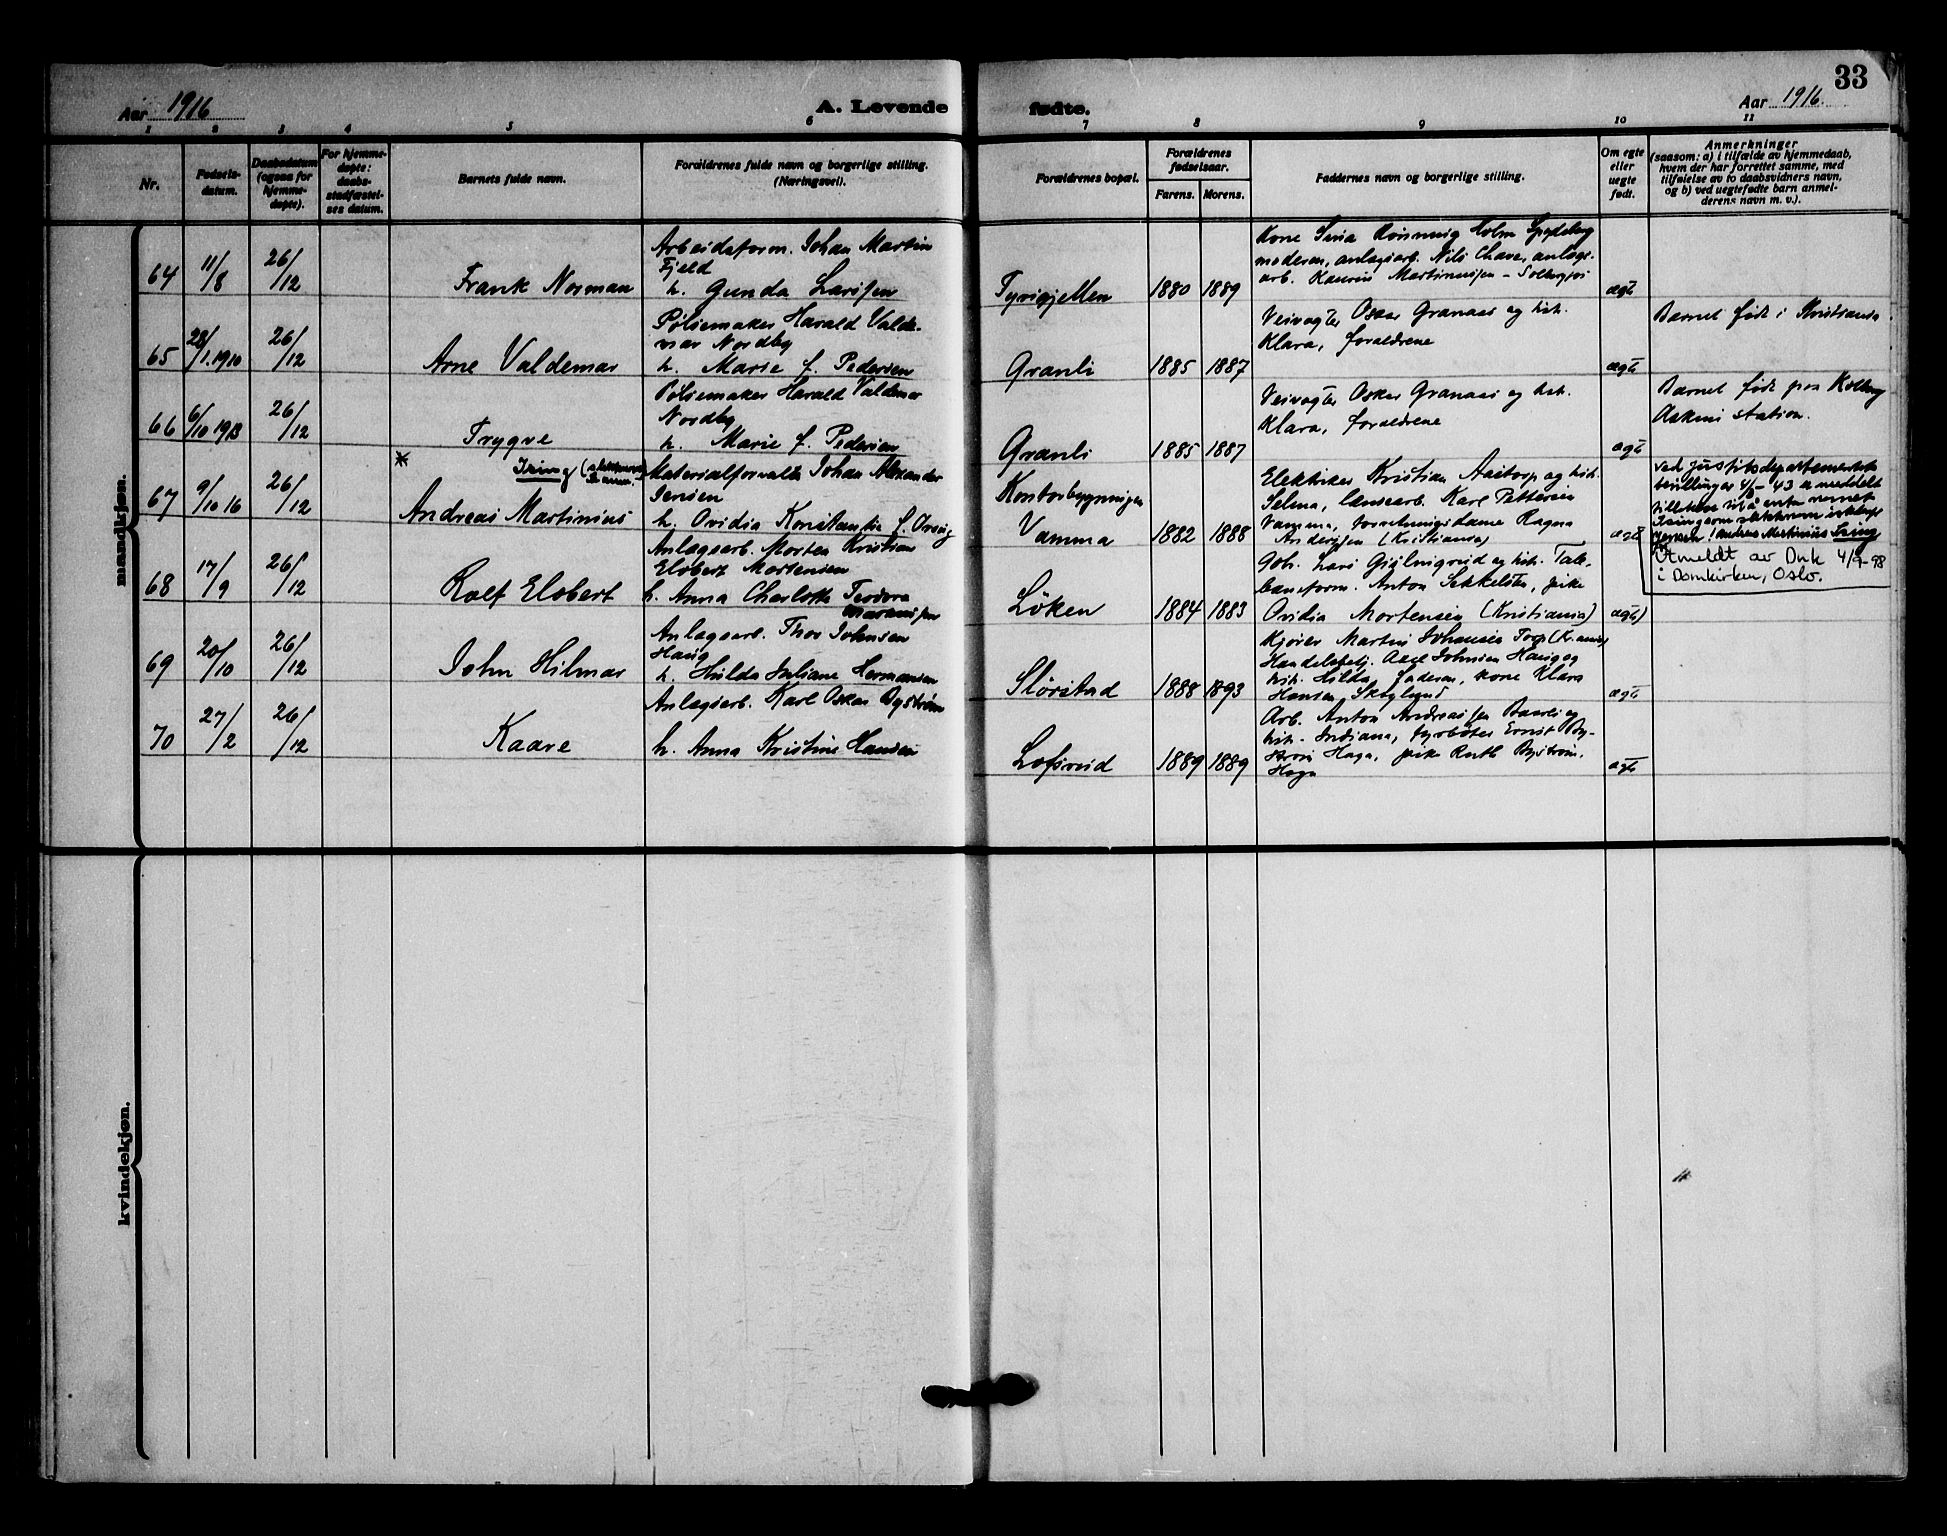 33
Aar 1916
A. Levende
fødte.
Aar 1916.
1 2 3 4 5 6 7 8 9 10 11
Nr.
Fødsels-
datum.
Daabsdatum
(ogsaa for
hjemme-
døpte).
For hjemme-
døpte:
daabs-
stadfæstel-
ses datum.
Barnets fulde navn.
Forældrenes fulde navn og borgerlige stilling.
(Næringsvei).
Forældrenes bopæl.
Forældrenes
fødselsaar.
Farens. Morens.
Faddernes navn og borgerlige stilling.
Om egte
eller
uegte
født.
Anmerkninger
(saasom: a) i tilfælde av hjemmedaab,
hvem der har forrettet samme, med
tilføielse av to daabsvidners navn,
og b) ved uegtefødte barn anmel-
derens navn m. v.).
mandkjøn.
64 11/8 26/12
Frank Norman
Arbeidsform. Johan Martin
Fjeld
h. Gunda Larssen
Tyrigjellen
1880 1889
Kone Sina Rönnug Holm Spydeberg
moderen, anlægsarb. Nils Chave, anlægs-
arb. Kaurin Martinussen - Solbergfos
ægte
65 28/1.1910 26/12
Arne Valdemar
Pölsemaker Harald Valde-
mar Nordby
h. Marie f. Pedersen
Granli
1885 1887
Veivogter Oskar Granaas og hst.
Klara, forældrene
ægte
Barnet født i Kristiania
66 6/10 1913 26/12
Trygve
Pölsemaker Harald Valdemar
Nordby
h. Marie f. Pedersen
Granli
1885 1887
Veivogter Oskar Granaas og hst.
Klara, forældrene
ægte
Barnet født paa Kolberg
Askim station.
67 9/10 16 26/12
*
Ising (slektsnavn)
Andreas Martinius
Materialforvalter Johan Alexander
Jensen
h. Ovidia Konstantie f.
Kontorbygningen
Vamma
1882 1888
Elektriker Kristian Aastorp og hst.
Selma, lænsearb. Karl Pettersen
Vamma, forretningsdame Ragna
Anderssen (Kristiania)
ægte
Ved justitsdepartementets
bevillinger 4/8-43 er meddelt
tillatelse til å anta navnet
Ising som slektsnavn
Andreas Martinius Ising
Utmeldt av Dnk 4/9-98
i Domkirken, Oslo.
68 17/9 26/12
Rolf Elobert
Anlægsarb. Morten Kristian
Elobert Mortensen
h. Anna Charlotte Teodora
Løken
1884 1883
baneform. Anton Sekkelsten, pike
Ovidia Mortensen (Kristiania)
ægte
69 20/10 26/12
John Hilmar
Anlægsarb. Thor Johnsen
Haug
h. Hulda Juliane Hermansen
Slörstad
1888 1893
Kjører Martin Johansen Torp (Kr.ania)
Handelsbetj. Axel Johnsen Haug og
hst. Hilda, faderen, kone Klara
Hansen, Skoglund
ægte
70 27/2 26/12
Kaare
Anlægsarb. Karl Oskar Bystrøm
h. Anna Kristine Hansen
Lofsrud
1889 1889
Arb. Anton Andreassen Baarli og
hst. Indiana, fyrböter Ernst By-
ström Haga, pike Ruth Byström,
Haga
ægte
kvindekjøn.